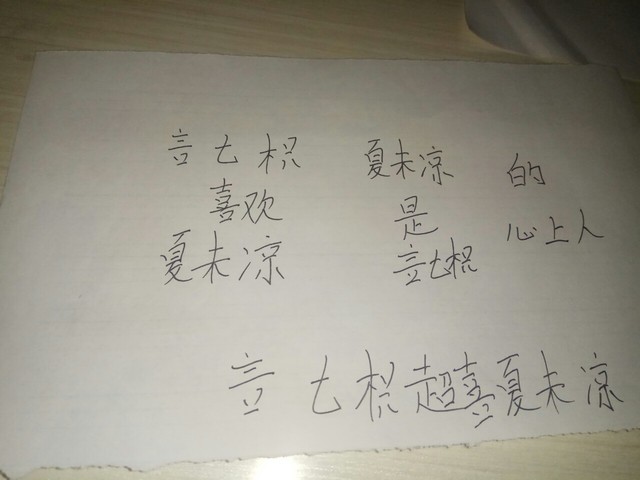 言七枳 夏未凉 的
喜欢 是 心上人
夏未凉 言七枳
言七枳超喜夏未凉